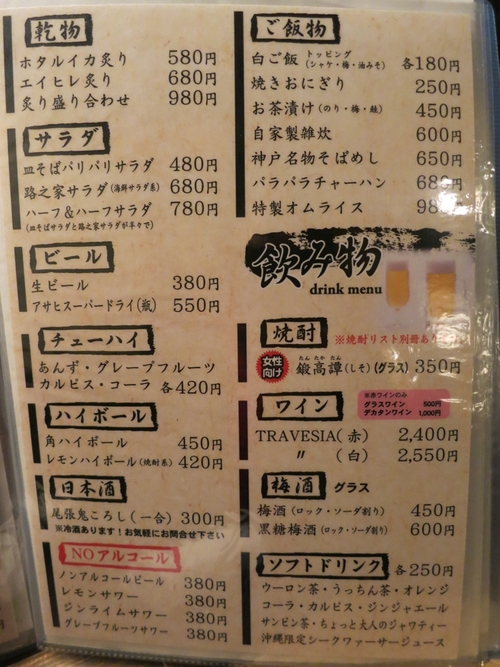 乾物
ホタルイカ炙り 580円
エイヒレ炙り 680円
炙り盛り合わせ 980円
サラダ
皿そばパリパリサラダ 480円
路之家サラダ(海鮮サラダ系) 680円
ハーフ&ハーフサラダ 780円
(皿そばサラダと路之家サラダが半々で)
ビール
生ビール 380円
アサヒスーパードライ(瓶) 550円
チューハイ
あんず・グレープフルーツ
カルピス・コーラ 各420円
ハイボール
角ハイボール 450円
レモンハイボール(焼酎系) 420円
日本酒
尾張鬼ころし(一合) 300円
※冷酒あります!お気軽にお問合せ下さい
NOアルコール
ノンアルコールビール 380円
レモンサワー 380円
ジンライムサワー 380円
グレープフルーツサワー 380円
ご飯物
白ご飯 トッピング(シャケ・梅・油みそ) 各180円
焼きおにぎり 250円
お茶漬け(のり・梅・鮭) 450円
自家製雑炊 600円
神戸名物そばめし 650円
パラパラチャーハン 680円
特製オムライス
飲み物
drink menu
焼酎 ※焼酎リスト別冊あり
女性向け 鍛高譚(しそ)(グラス) 350円
たん たか たん
ワイン
※赤ワインのみ
グラスワイン 500円
デカタンワイン 1,000円
TRAVESIA(赤) 2,400円
〃 (白) 2,550円
梅酒 グラス
梅酒(ロック・ソーダ割り) 450円
黒糖梅酒(ロック・ソーダ割り) 600円
ソフトドリンク 各250円
ウーロン茶・うっちん茶・オレンジ
コーラ・カルピス・ジンジャエール
サンピン茶・ちょっと大人のジャワティー
沖縄限定シークワァーサージュース